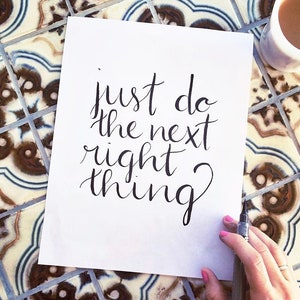 just do
the next
right
thing